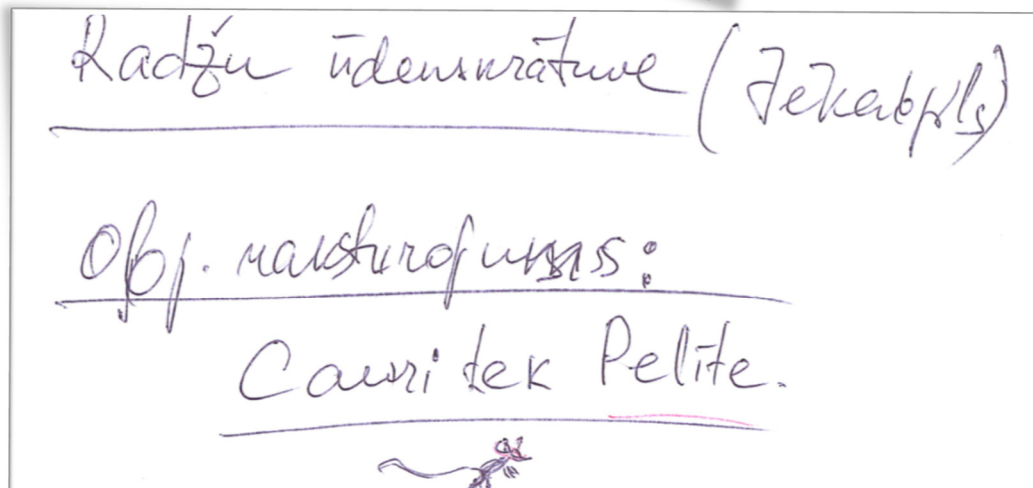 Radžu ūdenskrātuve (Jēkabpils)
Obj. raksturojums:
Cauri tek Pelīte.